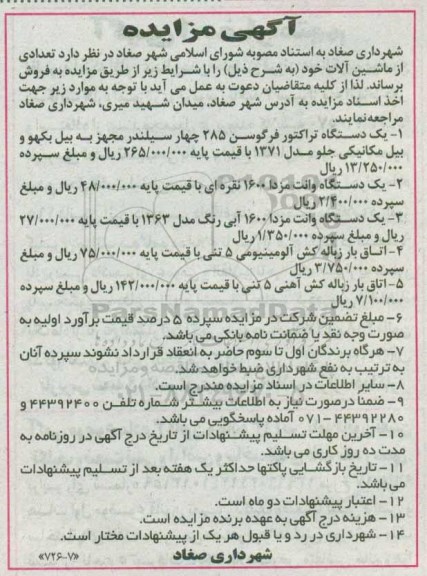 آگهی مزایده
شهرداری صغاد به استناد مصوبه شورای اسلامی شهر صغاد در نظر دارد تعدادی
از ماشین آلات خود (به شرح ذیل) را با شرایط زیر از طریق مزایده به فروش
برساند. لذا از کلیه متقاضیان دعوت به عمل می آید با توجه به موارد زیر جهت
اخذ اسناد مزایده به آدرس شهر صغاد، میدان شهید میری، شهرداری صغاد
مراجعه نمایند.
۱- یک دستگاه تراکتور فرگوسن ۲۸۵ چهار سیلندر مجهز به بیل بکهو و
بیل مکانیکی جلو مدل ۱۳۷۱ با قیمت پایه ۲۶۵/۰۰۰/۰۰۰ ریال و مبلغ سپرده
۱۳/۲۵۰/۰۰۰ ریال
۲- یک دستگاه وانت مزدا ۱۶۰۰ نقره ای با قیمت پایه ۴۸/۰۰۰/۰۰۰ ریال و مبلغ
سپرده ۲/۴۰۰/۰۰۰ ریال
۳- یک دستگاه وانت مزدا ۱۶۰۰ آبی رنگ مدل ۱۳۶۳ با قیمت پایه ۲۷/۰۰۰/۰۰۰
ریال و مبلغ سپرده ۱/۳۵۰/۰۰۰ ریال
۴- اتاق بار زباله کش آلومینیومی ۵ تنی با قیمت پایه ۷۵/۰۰۰/۰۰۰ ریال و مبلغ
سپرده ۳/۷۵۰/۰۰۰ ریال
۵- اتاق بار زباله کش آهنی ۵ تنی با قیمت پایه ۱۴۲/۰۰۰/۰۰۰ ریال و مبلغ سپرده
۷/۱۰۰/۰۰۰ ریال
۶- مبلغ تضمین شرکت در مزایده سپرده ۵ درصد قیمت برآورد اولیه به
صورت وجه نقد یا ضمانت نامه بانکی می باشد.
۷- هرگاه برندگان اول تا سوم حاضر به انعقاد قرارداد نشوند سپرده آنان
به ترتیب به نفع شهرداری ضبط خواهد شد.
۸- سایر اطلاعات در اسناد مزایده مندرج است.
۹- ضمنا درصورت نیاز به اطلاعات بیشتر شماره تلفن ۴۴۳۹۲۴۰۰ و
۴۴۳۹۲۲۸۰-۰۷۱ آماده پاسخگویی می باشد.
۱۰- آخرین مهلت تسلیم پیشنهادات از تاریخ درج آگهی در روزنامه به
مدت ده روز کاری می باشد.
۱۱- تاریخ بازگشایی پاکتها حداکثر یک هفته بعد از تسلیم پیشنهادات
می باشد.
۱۲- اعتبار پیشنهادات دو ماه است.
۱۳- هزینه درج آگهی به عهده برنده مزایده است.
۱۴- شهرداری در رد و یا قبول هر یک از پیشنهادات مختار است.
شهرداری صغاد
«۷۲۶-۷»